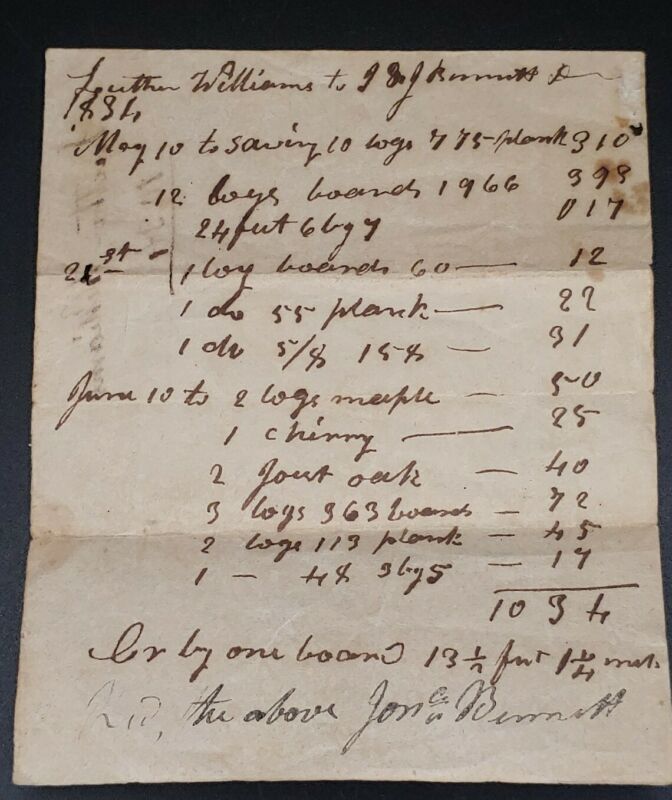 Luther Williams to J & J Bennett Dr
1834
May 10 to Sawing 10 logs 775 plank 310
12 logs boards 1966 393
24 feet 6 by 7 017
21st 1 log boards 60 — 12
1 do 55 plank — 22
1 do 5/8 158 — 31
June 10 to 2 logs maple — 50
1 cherry — 25
2 oak — 40
3 logs 363 boards — 72
2 logs 113 plank — 45
1 — 48 3 by 5 — 17
10 34
Cr by one board 13 1/2 feet 1 1/4 inch
Recd, the above Jona Bennett